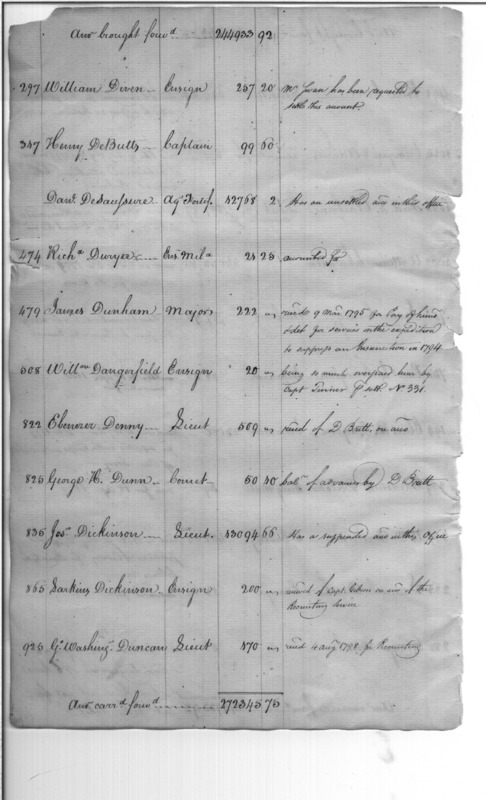 Amt brought forwd 244933 92
297 William Diven Ensign 257 20 Mr Swan has been requested to
settle this account.
347 Henry DeButts Captain 99 60
Danl Desaussure Agt Fortifs 12768 2 Has an unsettled acct in this office
474 Richd Dwyer Ens Mila 25 23 accounted for
479 James Dunham Major 222 " recd 9 Mar. 1795 for pay of himself
& det for services in the expedition
to suppress an Insurrection in 1794
508 Willm Dangerfield Ensign 20 " being so much overpaid him by
Capt Turner settt No 331.
822 Ebenezer Denny Lieut 509 " recd of D Britt, on acct
825 George H. Dunn Cornet 50 40 balce of advances by D Britt
835 Jos. Dickinson Lieut. 13094 66 Has a suspended acct in this Office
865 Larkin Dickinson Ensign 200 " recd of Capt on acct of the
Recruiting Service
925 Go Washingn Duncan Lieut 170 " recd 4 Augt 1798 for Recruiting
Amt carrd forwd 272345 75